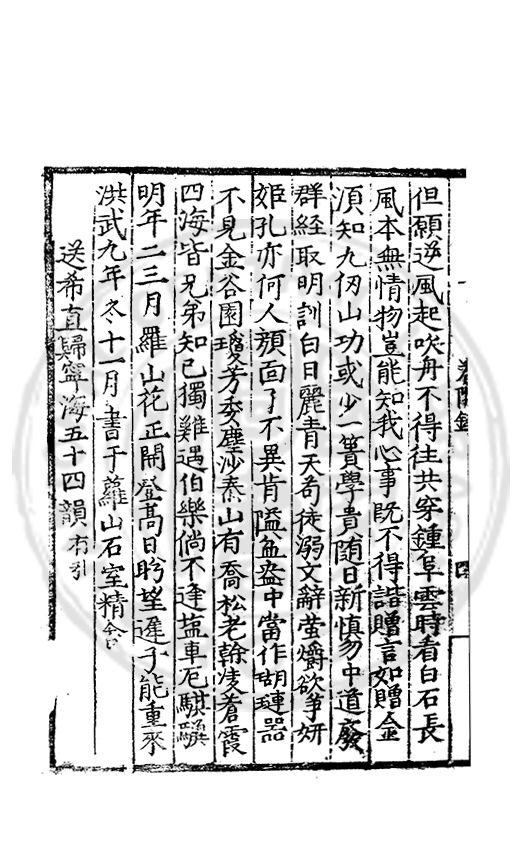 但願逆風起吹舟不得往共穿鍾阜雲時看白石長
風本無情物豈能知我心事既不得諧贈言如贈金
湏知九仞山功或少一簣學貴随日新慎勿中道廢
群經取明訓白日麗青天苟徒溺文辭螢爝欲爭妍
姬孔亦何人顔面了不異肯隘盆盎中當作瑚璉器
不見金谷園瓊芳委塵沙泰山有喬松老榦凌蒼霞
四海皆兄弟知己獨難遇伯樂倘不逢塩車厄騏驥
明年二三月羅山花正開登髙日盻望遲子能重來
洪武九年冬十一月書于蘿山石室精舎
送希直歸寧海五十四韻有引